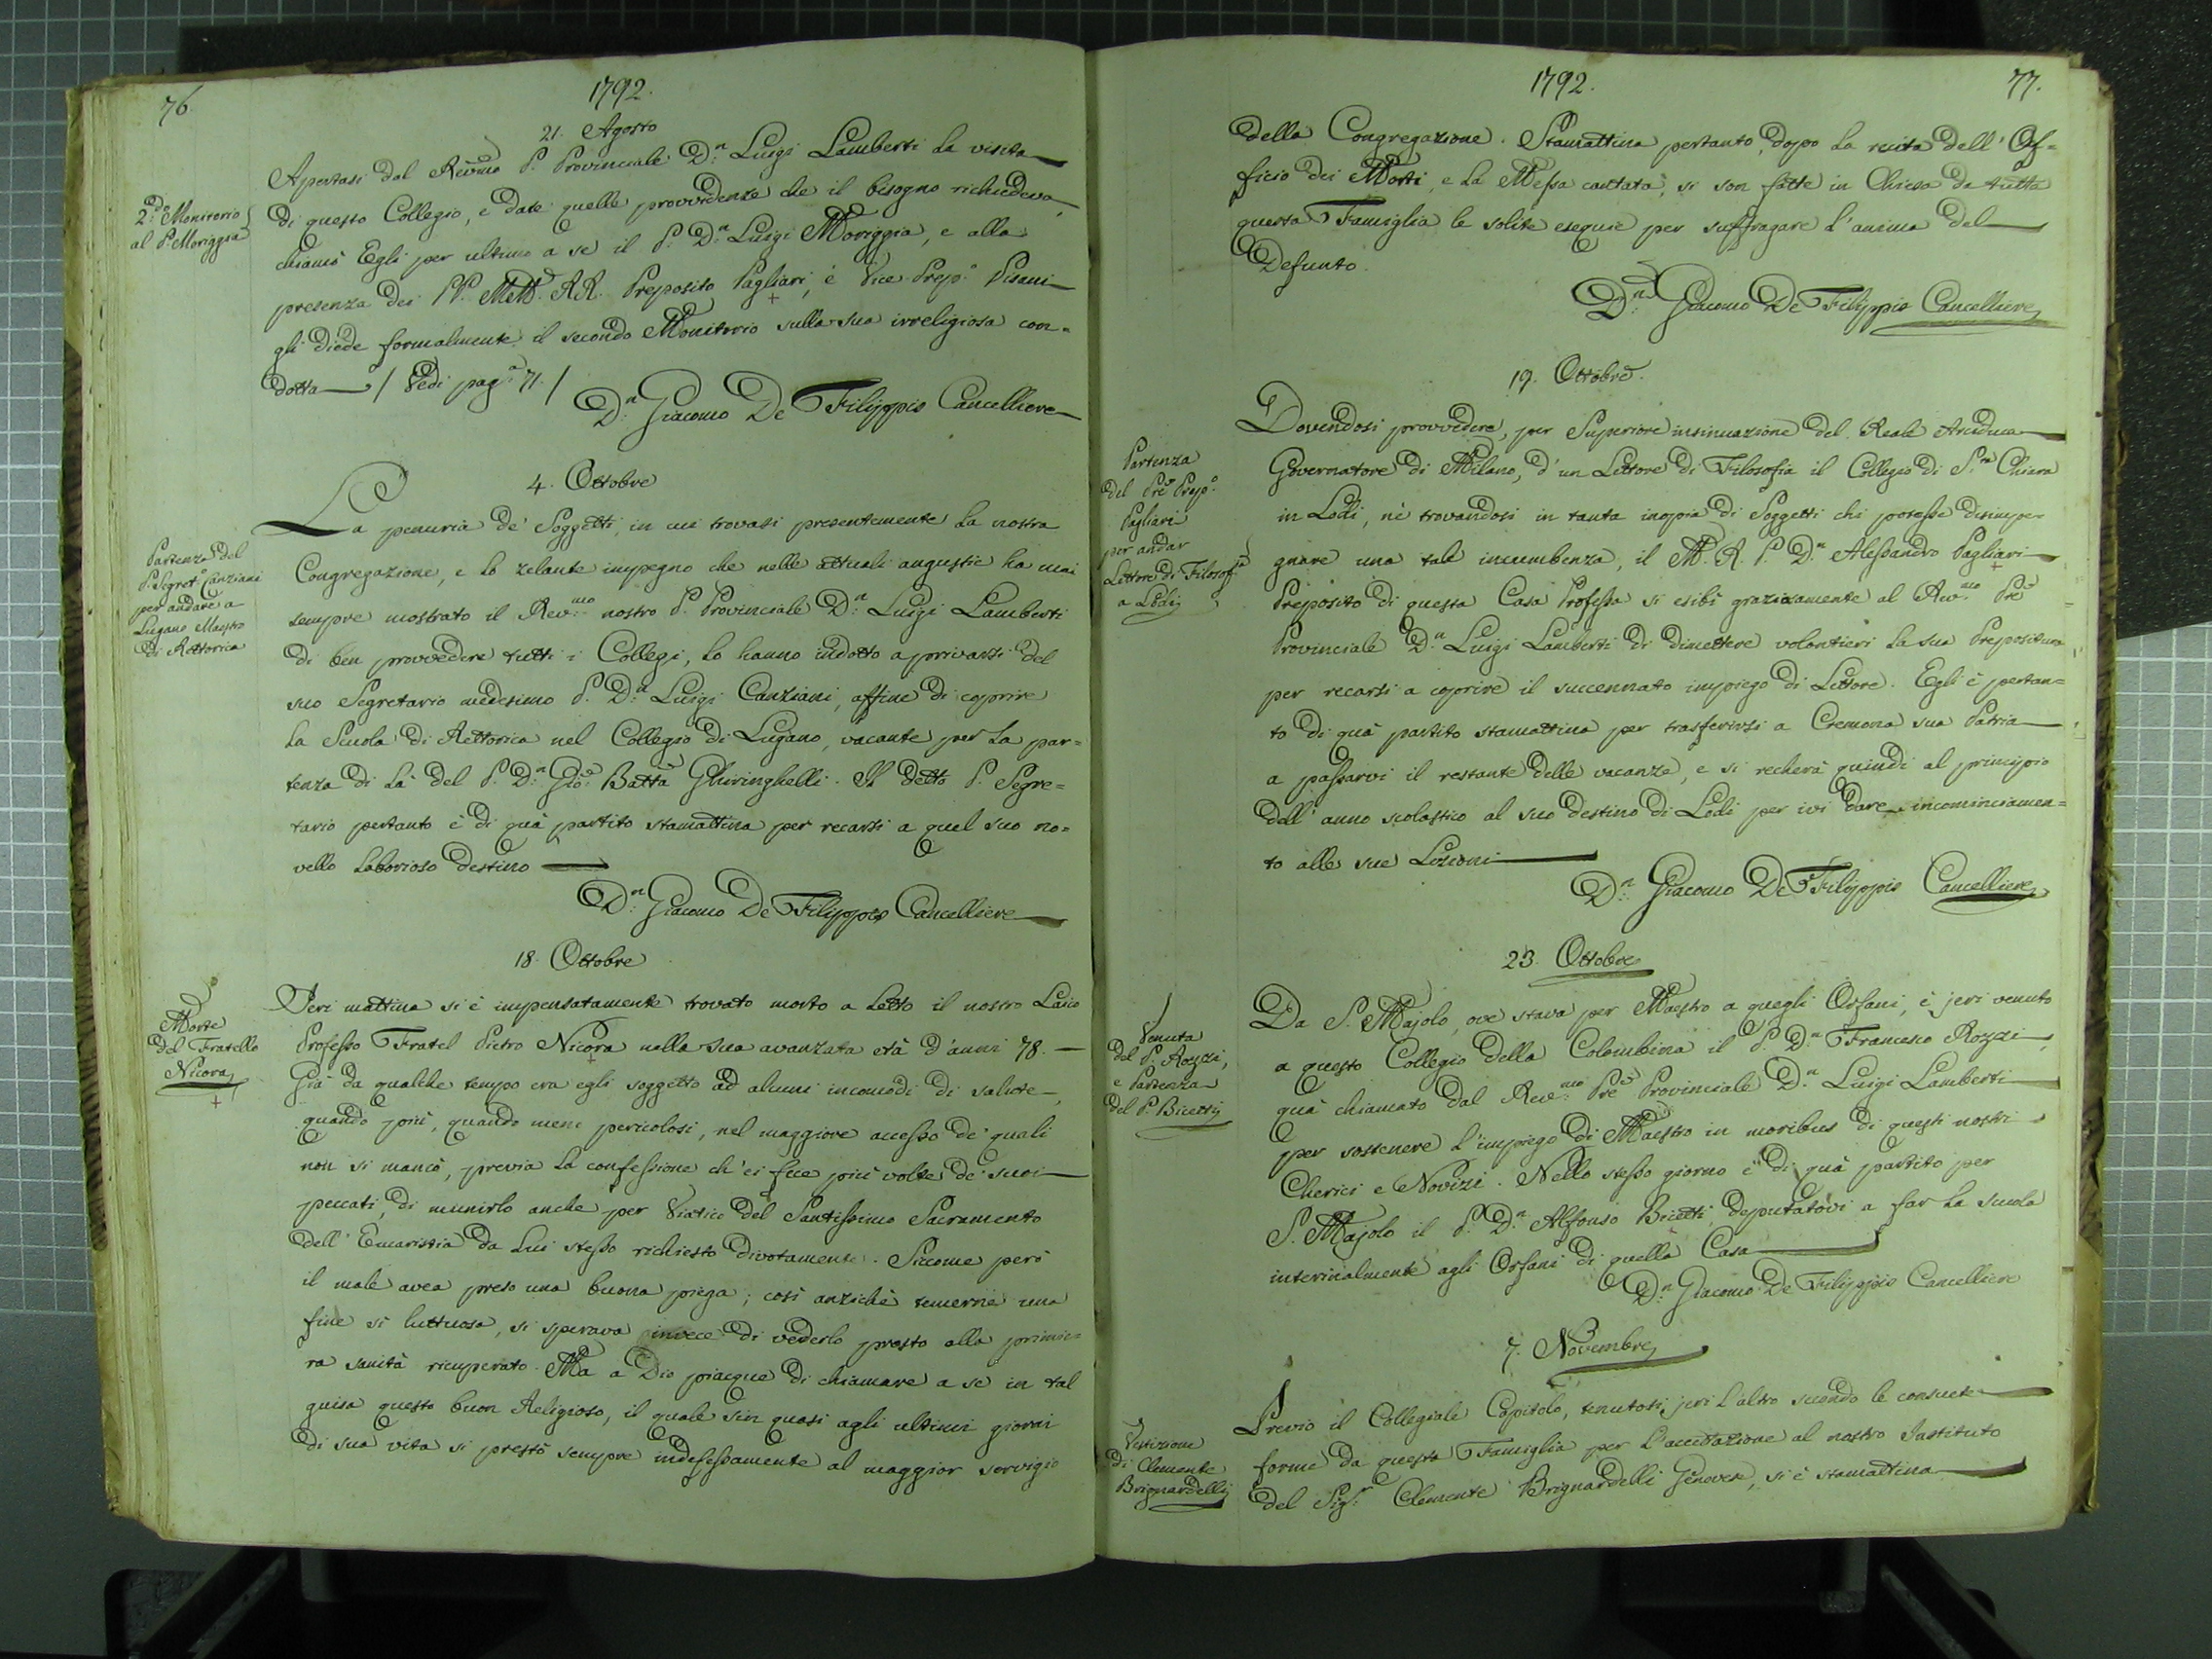 76.
1792.
21. Agosto
2.do Monitorio
al P. Moriggia
Apertasi dal Rev̄mo P. Provinciale D.n Luigi Lamberti la visita
di questo Collegio, e date quelle provvidenze che il bisogno richiedeva,
chiamò Egli per ultimo a se il P. D.n Luigi Moriggia, e alla
presenza dei PP. Molt. RR. Preposito Pagliari, e Vice-Prep.o Pisani
gli diede formalmente il secondo Monitorio sulla sua irreligiosa con=
dotta / Vedi pag.a 71. /
D.n Giacomo De Filippis Cancelliere
4. Ottobre
Partenza del
P. Segret.o Canziani
per andare a
Lugano Maestro
di Rettorica
La penuria de' Soggetti, in cui trovasi presentemente la nostra
Congregazione, e lo zelante impegno che nelle attuali angustie ha mai
sempre mostrato il Rev.mo nostro P. Provinciale D.n Luigi Lamberti
di ben provvedere tutti i Collegi, lo hanno indotto a privarsi del
suo Segretario medesimo P. D.n Luigi Canziani, affine di coprire
la Scuola di Rettorica nel Collegio di Lugano, vacante per la par=
tenza di là del P. D.n Gio: Batta Ghiringhelli. Il detto P. Segre=
tario pertanto è di quà partito stamattina per recarsi a quel suo no=
vello laborioso destino
D.n Giacomo De Filippis Cancelliere
18. Ottobre
Morte
del Fratello
Nicora
+
Jeri mattina si è impensatamente trovato morto a letto il nostro Laico
Professo Fratel Pietro Nicora nella sua avanzata età d'anni 78. —
Già da qualche tempo era egli soggetto ad alcuni incomodi di salute,
quando più, quando meno pericolosi, nel maggiore accesso de' quali
non si mancò, previa la confessione ch'ei fece più volte de' suoi
peccati, di munirlo anche per Viatico del Santissimo Sacramento
dell' Eucaristia da lui stesso richiesto divotamente. Siccome però
il male avea preso una buona piega; così anzichè temerne una
fine sì luttuosa, si sperava invece di vederlo presto alla primie=
ra sanità ricuperato. Ma a Dio piacque di chiamare a se in tal
guisa questo buon Religioso, il quale sin quasi agli ultimi giorni
di sua vita si prestò sempre indefessamente al maggior servigio
1792.
77.
della Congregazione. Stamattina pertanto, dopo la recita dell' Of=
ficio dei Morti, e la Messa cantata, si son fatte in Chiesa da tutta
questa Famiglia le solite esequie per suffragare l'anima del
Defunto.
D.n Giacomo De Filippis Cancelliere
19. Ottobre.
Partenza
del Pr̄e Prep.o
Pagliari
per andar
Lettore di Filosof.a
a Lodi
Dovendosi provvedere, per Superiore insinuazione del Reale Arciduca
Governatore di Milano, d'un Lettore di Filosofia il Collegio di S.ta Chiara
in Lodi, nè trovandosi in tanta inopia di Soggetti chi potesse disimpe-
gnare una tale incumbenza, il M. R. P. D.n Alessandro Pagliari
Preposito di questa Casa Professa si esibì graziosamente al Rev.mo Pr̄e
Provinciale D.n Luigi Lamberti di dimettere volontieri la sua Prepositura
per recarsi a coprire il succennato impiego di Lettore. Egli è pertan=
to di quà partito stamattina per trasferirsi a Cremona sua Patria
a passarvi il restante delle vacanze, e si recherà quindi al principio
dell'anno scolastico al suo destino di Lodi per ivi dare incominciamen=
to alle sue Lezioni
D.n Giacomo De Filippis Cancelliere
23. Ottobre
Venuta
del P. Rozzi,
e Partenza
del P. Bicetti
Da S. Majolo, ove stava per Maestro a quegli Orfani, è jeri venuto
a questo Collegio della Colombina il P. D.n Francesco Rozzi,
quà chiamato dal Rev.mo Pr̄e Provinciale D.n Luigi Lamberti
per sostenere l'impiego di Maestro in moribus di questi nostri
Cherici e Novizi. Nello stesso giorno è di quà partito per
S. Majolo il P. D.n Alfonso Bicetti, deputatovi a far la scuola
interinalmente agli Orfani di quella Casa
D.n Giacomo De Filippis Cancelliere
7. Novembre
Vestizione
di Clemente
Brignardelli
Previo il Collegiale Capitolo, tenutosi jeri l'altro secondo le consuete
forme da questa Famiglia per l'accettazione al nostro Instituto
del Sig.r Clemente Brignardelli Genovese, si è stamattina